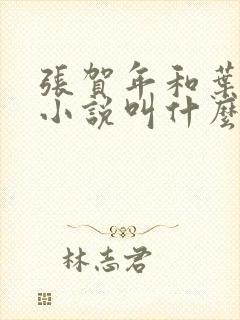 張賀年和葉
小説叫什麼
林志君